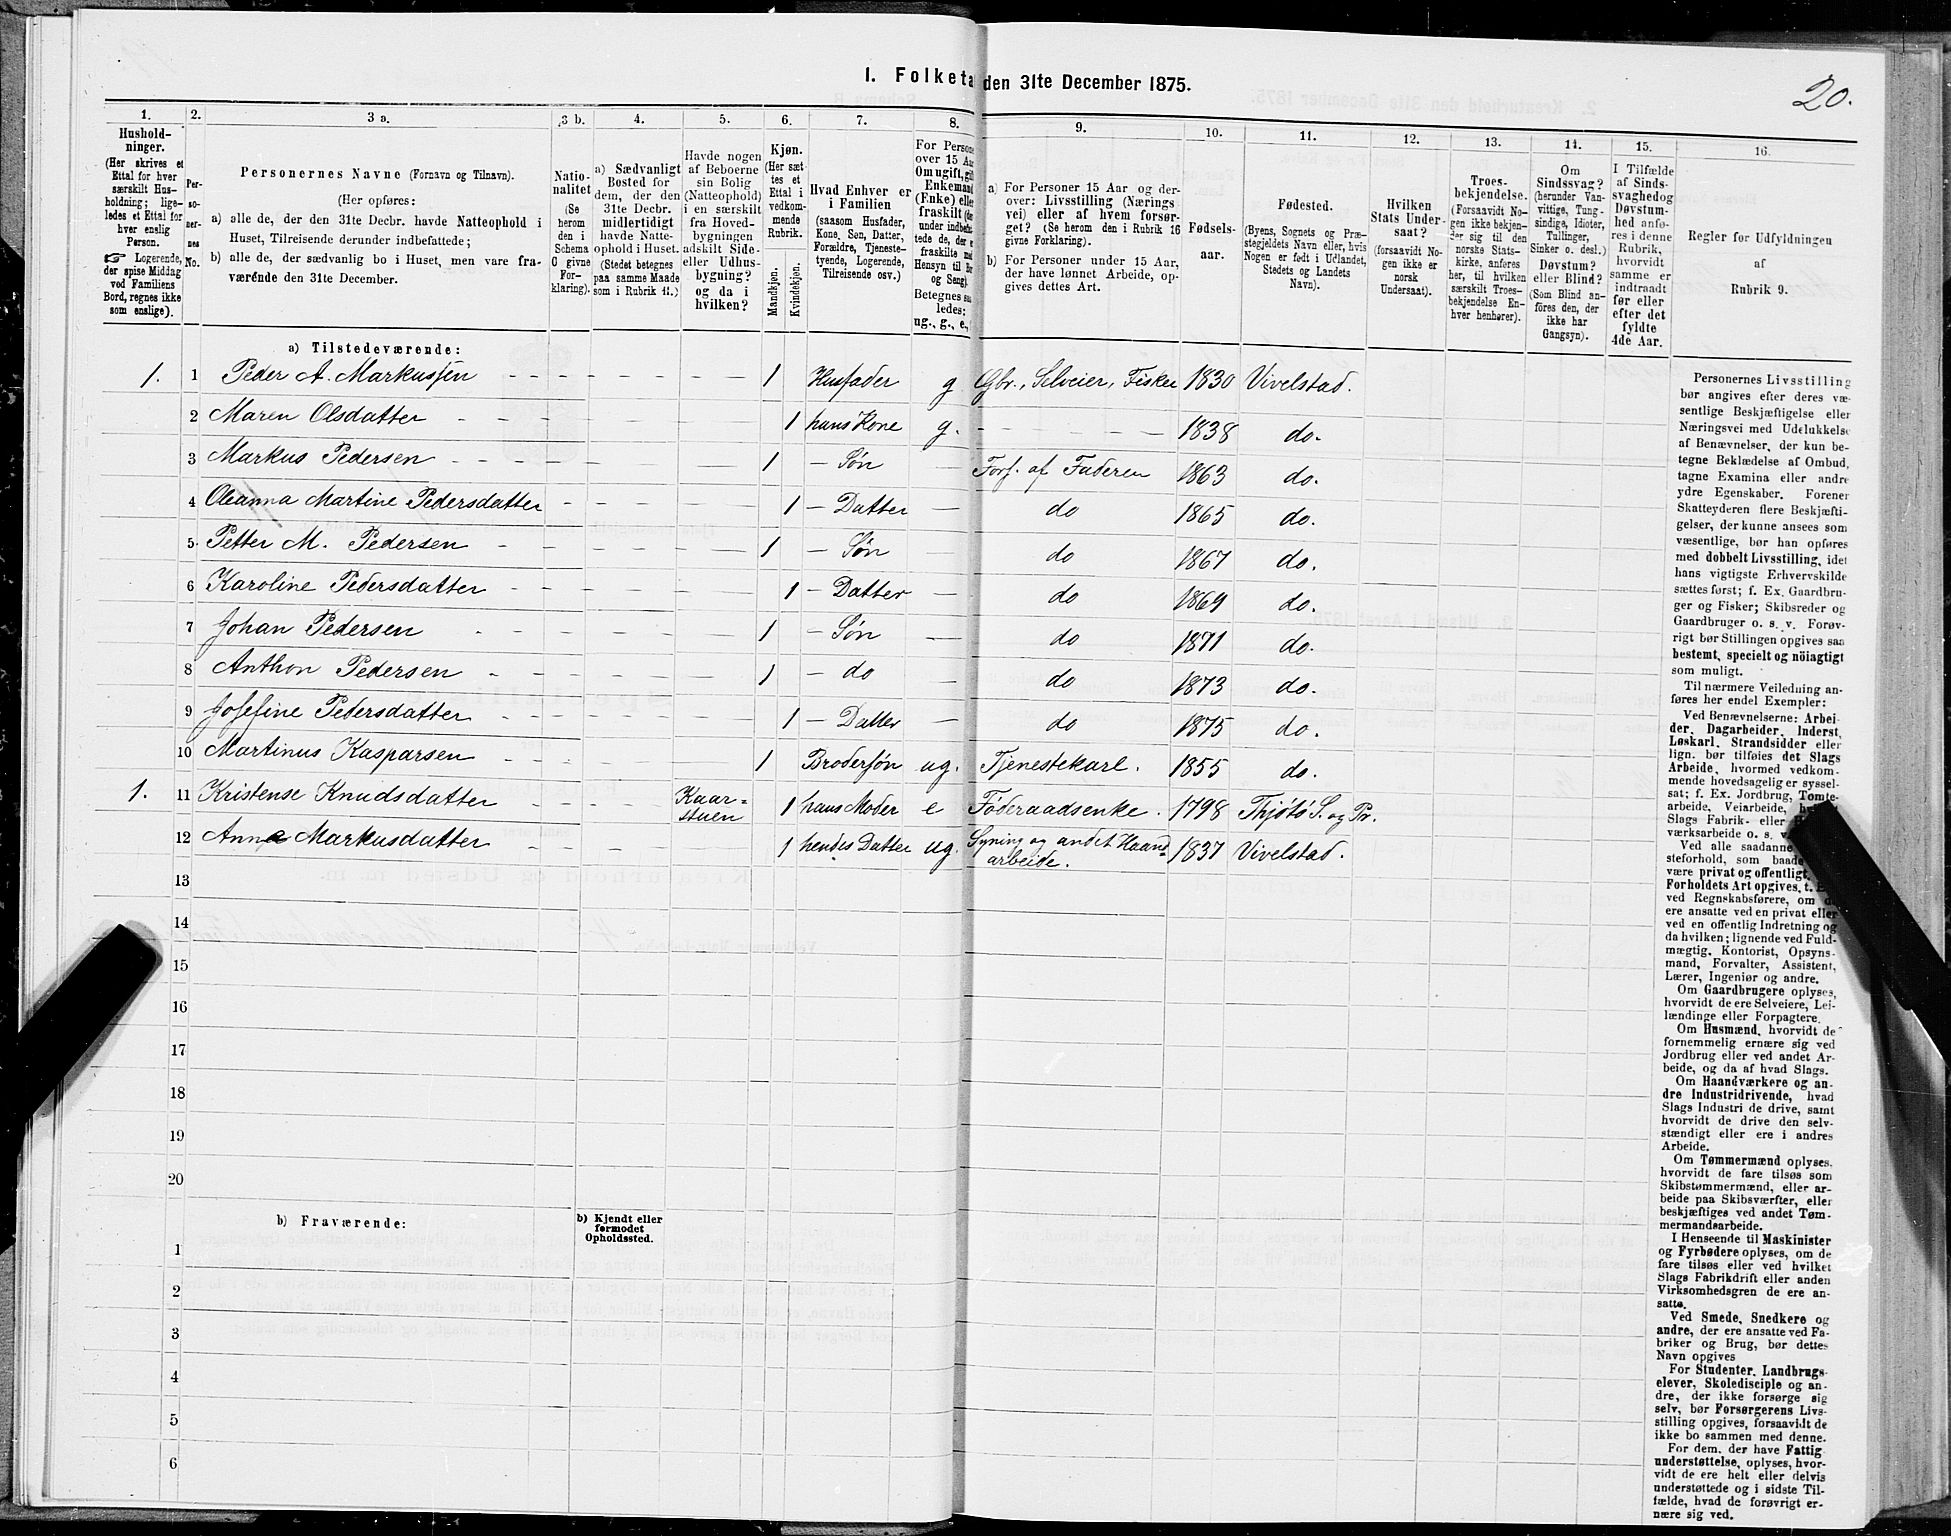 I. Folketa den 31te December 1875.
20.
1.
Hushold-
ninger.
(Her skrives et
Ettal for hver
særskilt Hus-
holdning; lige-
ledes et Ettal for
hver enslig
Person.
☞ Logerende,
der spise Middag
ved Familiens
Bord, regnes ikke
som enslige).
2.
Per-
so-
ner-
nes
No.
3 a.
Personernes Navne (Fornavn og Tilnavn).
(Her opføres:
a) alle de, der den 31te Decbr. havde Natteophold i
Huset, Tilreisende derunder indbefattede;
b) alle de, der sædvanlig bo i Huset, men vare fra-
værende den 31te December.
3 b.
Natio-
nalitet
(Se
herom
den i
Schema
C givne
For-
klaring).
4.
a) Sædvanligt
Bosted for
dem, der den
31te Decbr.
midlertidigt
havde Natte-
ophold i Huset.
(Stedet betegnes
paa samme Maade
som i Rubrik 11.)
5.
Havde nogen
af Beboerne
sin Bolig
(Natteophold)
i en særskilt
fra Hoved-
bygningen
adskilt Side-
eller Udhus-
bygning?
og da i
hvilken?
6.
Kjøn.
(Her sæt-
tes et
Ettal i
vedkom-
mende
Rubrik.
Mandkjøn.
Kvindekjøn.
7.
Hvad Enhver er
i Familien
(saasom Husfader,
Kone, Søn, Datter,
Forældre, Tjeneste-
tyende, Logerende,
Tilreisende osv.)
8.
For Persone
over 15 Aa
Om ugift, gif
Enkemand
(Enke) elle
fraskilt (de
under indbefat
tede de, der e
fraskilte med
Hensyn til Bo
og Seng).
Betegnes saa
ledes:
ug., g., e.,
9.
a) For Personer 15 Aar og der-
over: Livsstilling (Nærings
vei) eller af hvem forsør-
get? (Se herom den i Rubrik 16
givne Forklaring).
b) For Personer under 15 Aar,
der have lønnet Arbeide, op-
gives dettes Art.
10.
Fødsels-
aar.
11.
Fødested.
(Byens, Sognets og Præ-
stegjeldets Navn eller, hvis
Nogen er født i Udlandet,
Stedets og Landets
Navn).
12.
Hvilken
Stats Under-
saat?
(forsaavidt No-
gen ikke er
norsk
Undersaat).
13.
Troes-
bekjendelse.
(Forsaavidt No-
gen ikke bekjen-
der sig til den
norske Stats-
kirke, anføres
her, til hvilken
særskilt Troes-
bekjendelse En-
hver henhører).
14.
Om
Sindssvag?
(herunder Van-
vittige, Tung-
sindige, Idioter,
Tullinger,
Sinker o. desl.)
Døvstum?
eller Blind?
(Som Blind an-
føres den, der
ikke har
Gangsyn).
15.
I Tilfælde
af Sinds-
svaghedog
Døvstum-
hed anfø-
res i denne
Rubrik,
hvorvidt
samme er
indtraadt
før eller
efter det
fyldte
4de Aar.
16.
Regler før Udfyldningen
af
Rubrik 9.
a) Tilstedeværende:
1. 1 Peder A. Markussen 1 Husfader g Gbr., Selveier, Fisker 1830 Vivelstad.
2 Maren Olsdatter 1 hans Kone g. 1838 do.
3 Markus Pedersen 1 – Søn — Fors. af Faderen 1863 do.
4 Oleanna Martine Pedersdatter 1 – Datter — do 1865 do.
5 Petter M. Pedersen 1 – Søn — do 1867 do.
6 Karoline Pedersdatter 1 – Datter — do 1869 do.
7 Johan Pedersen 1 – Søn — do 1871 do.
8 Anthon Pedersen 1 – do — do 1873 do.
9 Josefine Pedersdatter 1 – Datter — do 1875 do.
10 Martinus Kasparsen 1 Brodersøn ug. Tjenestekarl. 1855 do.
1. 11 Kristense Knudsdatter Kaar=
stuen 1 hans Moder e Føderaadsenke. 1798 Thjøtø S. og Pr.
12 Anne Markusdatter 1 hendes Datter ug. Syning og andet Haand=
arbeide. 1837 Vivelstad.
13
14
15
16
17
18
19
20
b) Fraværende:
b) Kjendt eller
formodet
Opholdssted.
1
2
3
4
5
6
Personernes Livsstilling
bør angives efter deres væ-
sentlige Beskjæftigelse eller
Næringsvei med Udelukkelse
af Benævnelser, der kun be-
tegne Beklædelse af Ombud,
tagne Examina eller andre
ydre Egenskaber. Forener
Skatteyderen flere Beskjæfti-
gelser, der kunne ansees som
væsentlige, bør han opføres
med dobbelt Livsstilling, idet
hans vigtigste Erhvervskilde
sættes først; f. Ex. Gaardbru-
ger og Fisker; Skibsreder og
Gaardbruger o. s. v. Forøv-
rigt bør Stillingen opgives saa
bestemt, specielt og nöiagtigt
som muligt.
Til nærmere Veiledning an-
føres her endel Exempler:
Ved Benævnelserne: Arbei-
der, Dagarbeider, Inderst,
Løskarl, Strandsidder eller
lign. bør tilføies det Slags
Arbeide, hvormed vedkom-
mende hovedsagelig er syssel-
sat; f. Ex. Jordbrug, Tomte-
arbeide, Veiarbeide,
Slags Fabrik- eller
værksarbeide o. s. v.
Ved alle saadanne
steforhold, som baade
være privat og offentligt,
Forholdets Art opgives, t. E
ved Regnskabsførere, om
ere ansatte ved en privat eller
ved en offentlig Indretning og
da hvilken; lignende ved Fuld-
mægtig, Kontorist, Opsyns-
mand, Forvalter, Assistent,
Lærer, Ingeniør og andre.
Om Gaardbrugere oplyses,
hvorvidt de ere Selveiere, Lei-
lændinge eller Forpagtere.
Om Husmænd, hvorvidt de
fornemmelig ernære sig ved
Jordbrug eller ved andet Ar-
beide, og da af hvad Slags.
Om Haandværkere og an-
dre Industridrivende, hvad
Slags Industri de drive, samt
hvorvidt de drive den selv-
stændigt eller ere i andres
Arbeide.
Om Tømmermænd oplyses,
hvorvidt de fare tilsøs som
Skibstømmermænd, eller ar-
beide paa Skibsværfter, eller
beskjæftiges ved andet Tøm-
mermandsarbeide.
I Henseende til Maskinister
og Fyrbødere oplyses, om de
fare tilsøs eller ved hvilket
Slags Fabrikdrift eller anden
Virksomhedsgren de ere an-
satte.
Ved Smede, Snedkere og
andre, der ere ansatte ved Fa-
briker og Brug, bør dettes
Navn opgives
For Studenter, Landbrugs-
elever, Skoledisciple og an-
dre, der ikke forsørge sig
selv, bør Forsørgerens Livs-
stilling opgives, forsaavidt de
ikke bo sammen med denne.
For dem, der have Fattig
understøttelse, oplyses, hvor-
vidt de ere helt eller delvis
understøttede og i sidste Til-
fælde, hvad de forøvrigt er-
nære sig ved.